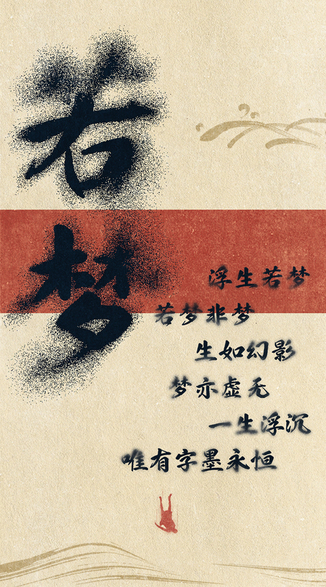 若梦
浮生若梦
若梦非梦
生如幻影
梦亦虚无
一生浮沉
唯有字墨永恒